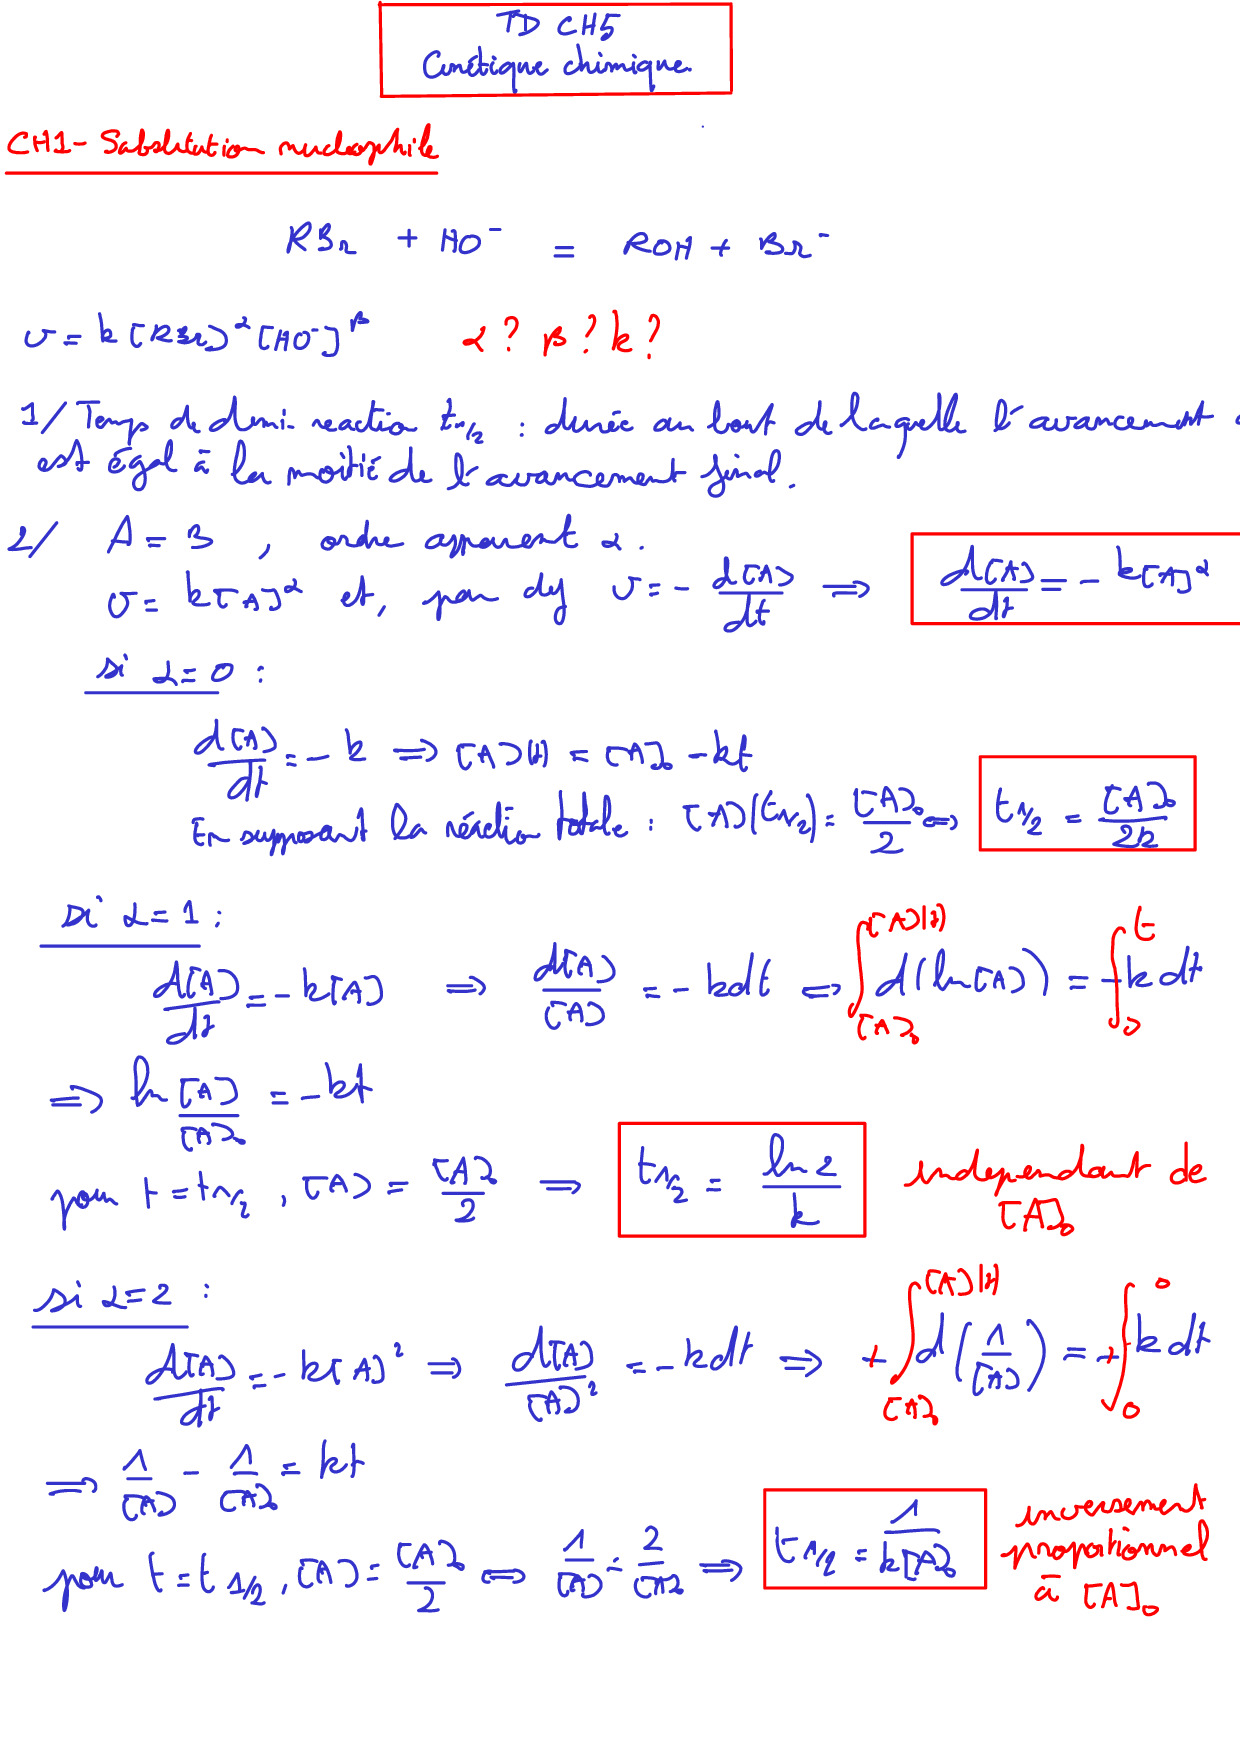 TD CH5
Cinétique chimique.
CH1- Substitution nucléophile
RBr + HO⁻ = ROH + Br⁻
v = k [RBr]^α [HO⁻]^β α ? β ? k ?
1/ Temps de demi-reaction t1/2 : durée au bout de laquelle l'avancement
est égal à la moitié de l'avancement final.
2/ A = B , ordre apparent α.
v = k[A]^α et, par def v = - d[A]/dt ⟹ d[A]/dt = - k[A]^α
si α = 0 :
d[A]/dt = - k ⟹ [A](t) = [A]₀ - kt
En supposant la réaction totale : [A](t1/2) = [A]₀/2 ⟺ t1/2 = [A]₀/2k
si α = 1 :
d[A]/dt = - k[A] ⟹ d[A]/[A] = - kdt ⟺ ∫_{[A]₀}^{[A](t)} d(ln[A]) = ∫_0^t -k dt
⟹ ln [A]/[A]₀ = - kt
pour t = t1/2 , [A] = [A]₀/2 ⟹ t1/2 = ln 2/k independant de
[A]₀
si α = 2 :
d[A]/dt = - k[A]² ⟹ d[A]/[A]² = - kdt ⟹ + ∫_{[A]₀}^{[A](t)} d(1/[A]) = + ∫_0^0 k dt
⟹ 1/[A] - 1/[A]₀ = kt
pour t = t1/2 , [A] = [A]₀/2 ⟺ 1/[A] = 2/[A]₀ ⟹ t1/2 = 1/k[A]₀ inversement
proportionnel
à [A]₀